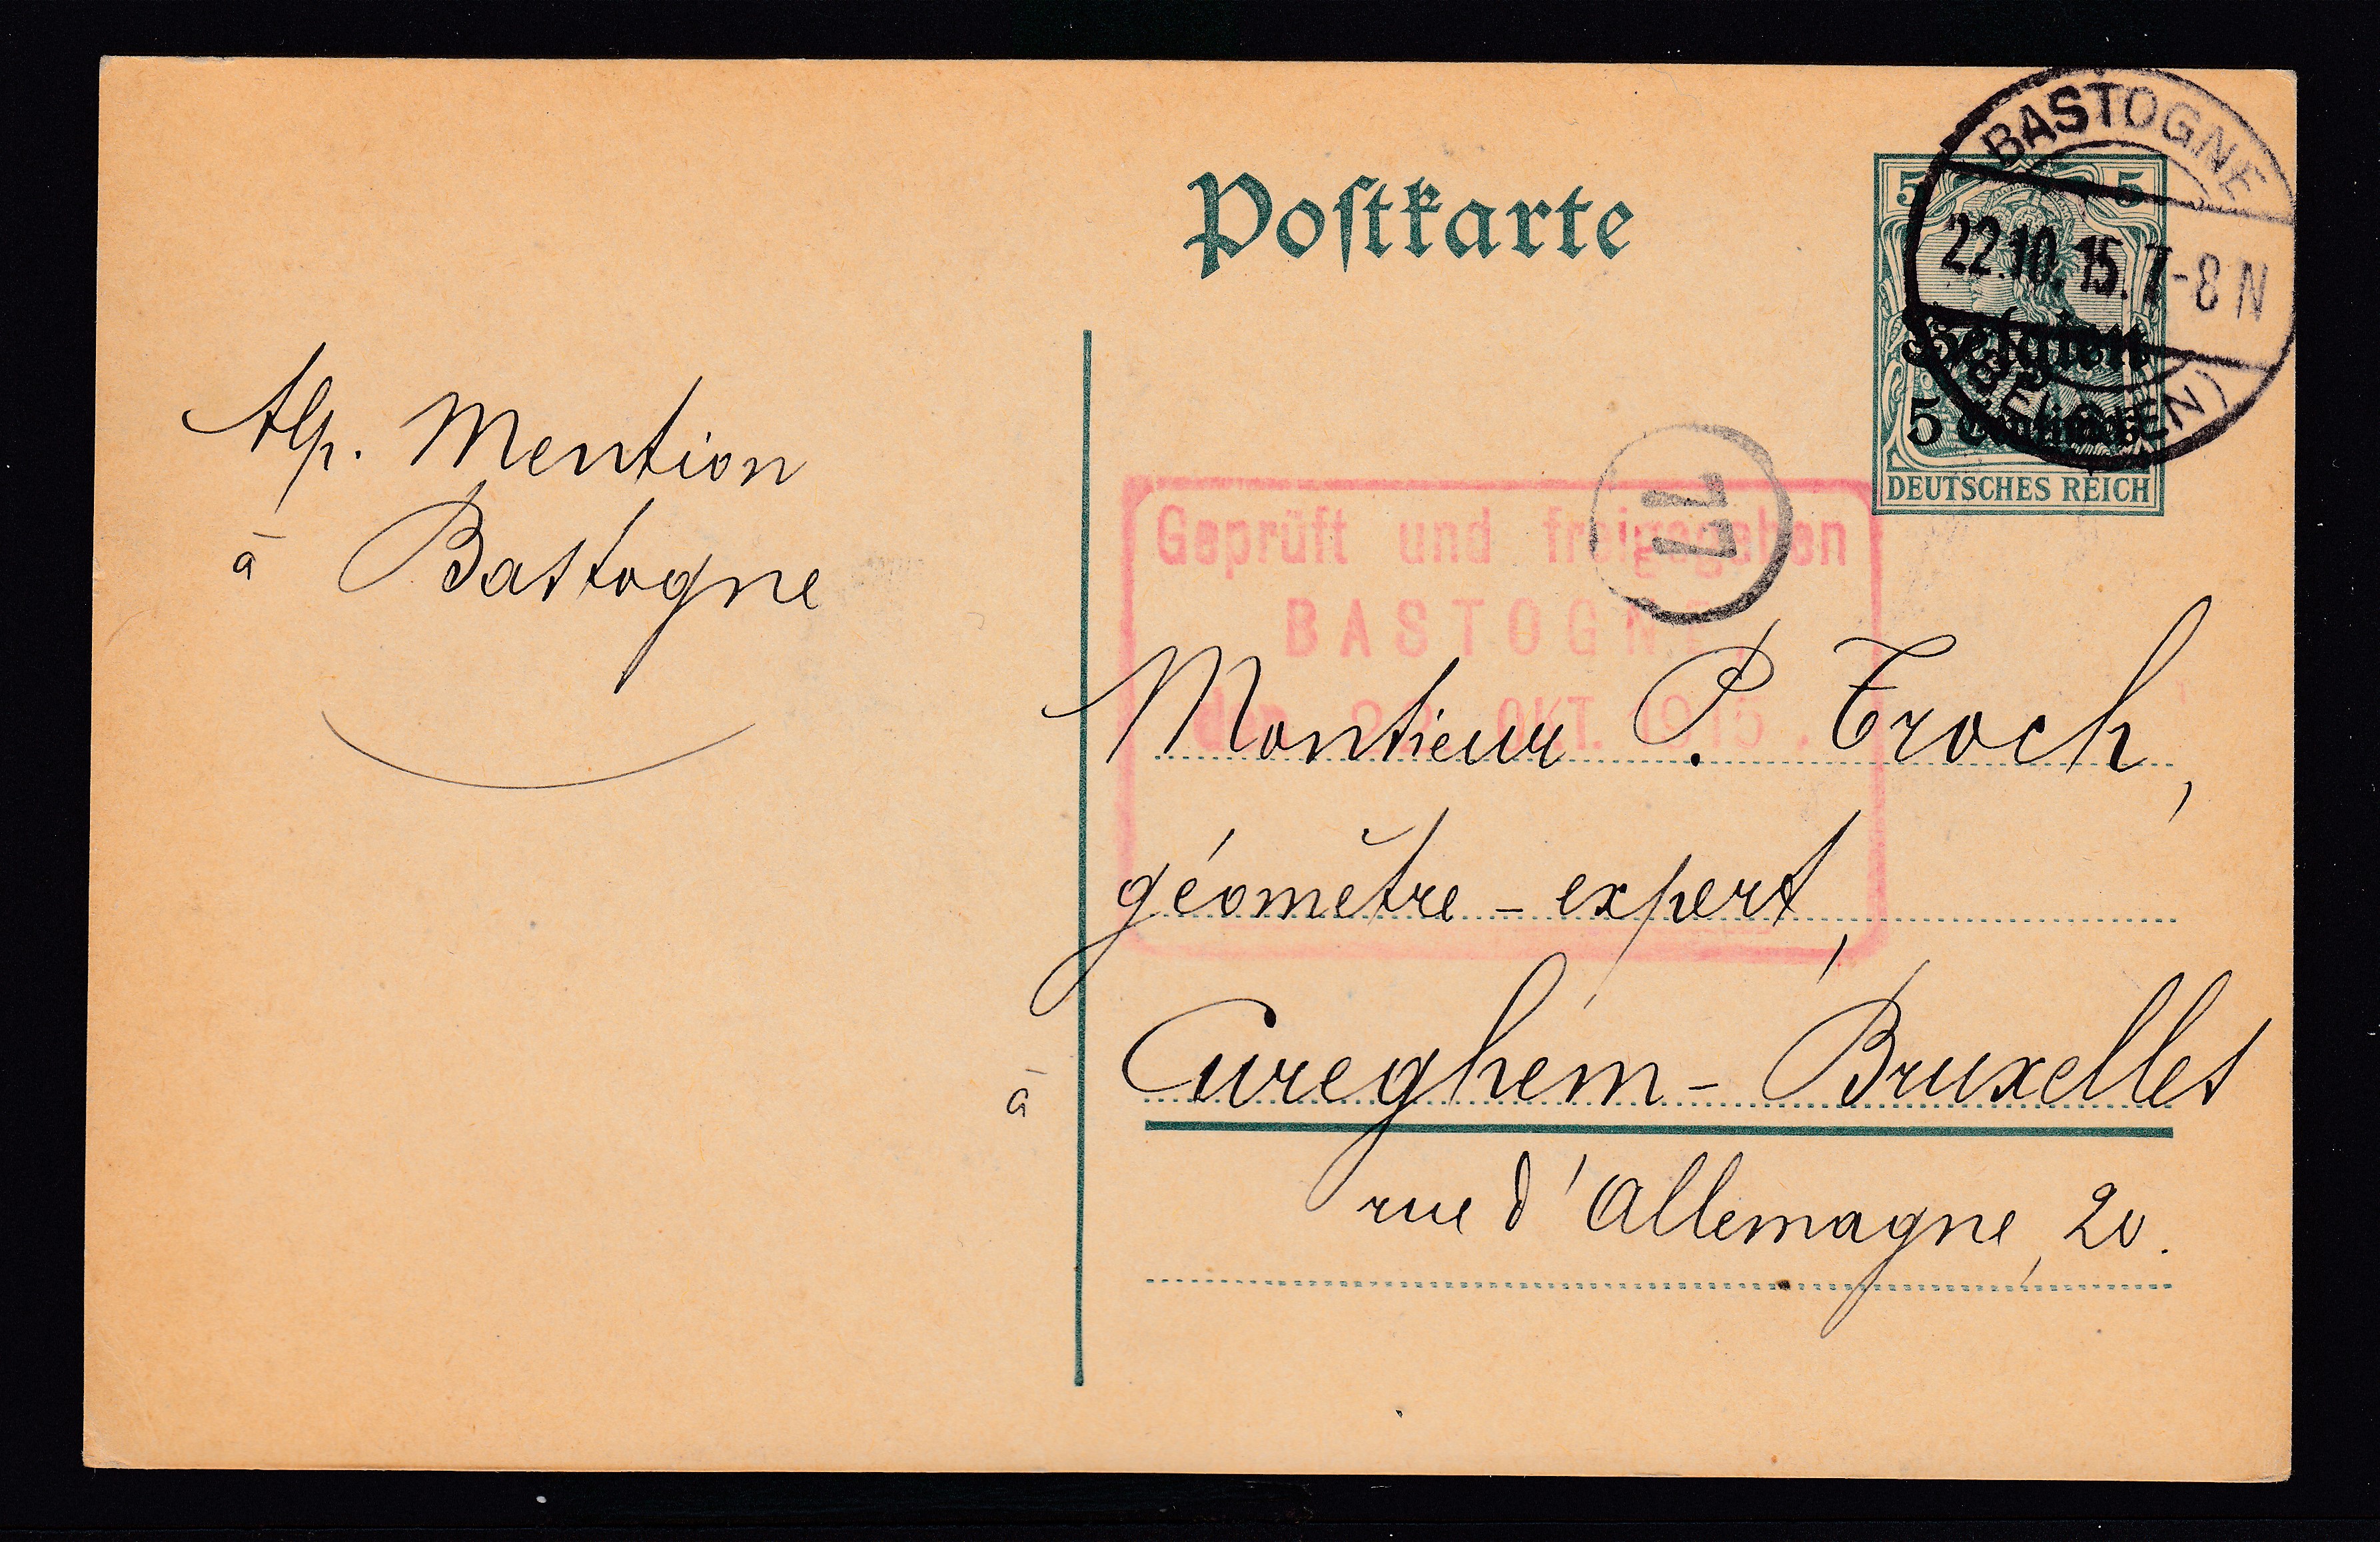 Postkarte
BASTOGNE
22.10.15. 7-8 N
(BELGIEN)
5 5
Belgien
5 Centimes
DEUTSCHES REICH
Alp. Mention
à Bastogne
77
Geprüft und freigegeben
BASTOGNE,
den 22. OKT. 1915.
Monsieur P. Troch,
géomètre-expert,
à Cureghem-Bruxelles
rue d'Allemagne, 20.